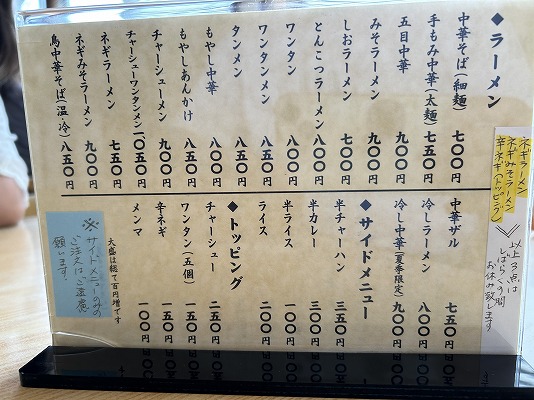 ◆ラーメン
中華そば(細麺) 七〇〇円
手もみ中華(太麺) 七五〇円
五目中華 九〇〇円
みそラーメン 九〇〇円
しおラーメン 七〇〇円
とんこつラーメン 八〇〇円
ワンタン 八〇〇円
ワンタンメン 八五〇円
タンメン 八五〇円
もやし中華 八〇〇円
もやしあんかけ 八五〇円
チャーシューメン 九〇〇円
チャーシューワンタンメン 一、〇五〇円
ネギラーメン 七五〇円
ネギみそラーメン 九〇〇円
鳥中華そば(温・冷) 八五〇円
ネギラーメン
ネギみそラーメン
辛ネギ(トッピング)
以上3点は
しばらくの間
お休み致します
中華ザル 七五〇円
冷しラーメン 八〇〇円
冷し中華(夏季限定) 九〇〇円
◆サイドメニュー
半チャーハン 三五〇円
半カレー 三〇〇円
半ライス 一〇〇円
ライス 二〇〇円
◆トッピング
チャーシュー 二五〇円
ワンタン(五個) 一五〇円
辛ネギ 一五〇円
メンマ 一〇〇円
大盛は総て百円増です
※サイドメニューのみの
ご注文はご遠慮
願います。